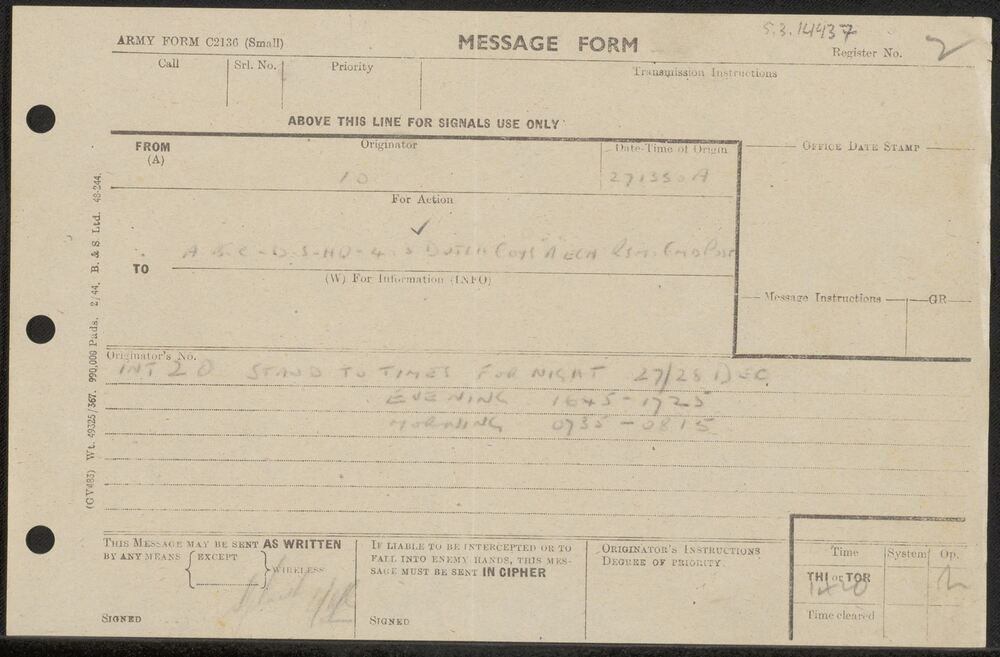 S.3.14437
ARMY FORM C2136 (Small)
MESSAGE FORM
Register No. 2
Call Srl. No. Priority Transmission Instructions
ABOVE THIS LINE FOR SIGNALS USE ONLY
FROM (A) Originator Date-Time of Origin OFFICE DATE STAMP
IO 271350A
For Action
✓
TO A B C - D - S - HQ - 4 DUTCH COYS RECH
(W) For Information (INFO)
Message Instructions GR
Originator's No.
INT 20 STAND TO TIMES FOR NIGHT 27/28 DEC
EVENING 1645-1725
MORNING 0735-0815
(GV483) Wt. 49325/367. 990,000 Pads. 2/44. B. & S. Ltd. 48-244.
THIS MESSAGE MAY BE SENT AS WRITTEN
BY ANY MEANS EXCEPT WIRELESS
SIGNED
IF LIABLE TO BE INTERCEPTED OR TO
FALL INTO ENEMY HANDS, THIS MES-
SAGE MUST BE SENT IN CIPHER
SIGNED
ORIGINATOR'S INSTRUCTIONS
DEGREE OF PRIORITY.
Time System Op.
THI or TOR
1420
Time cleared